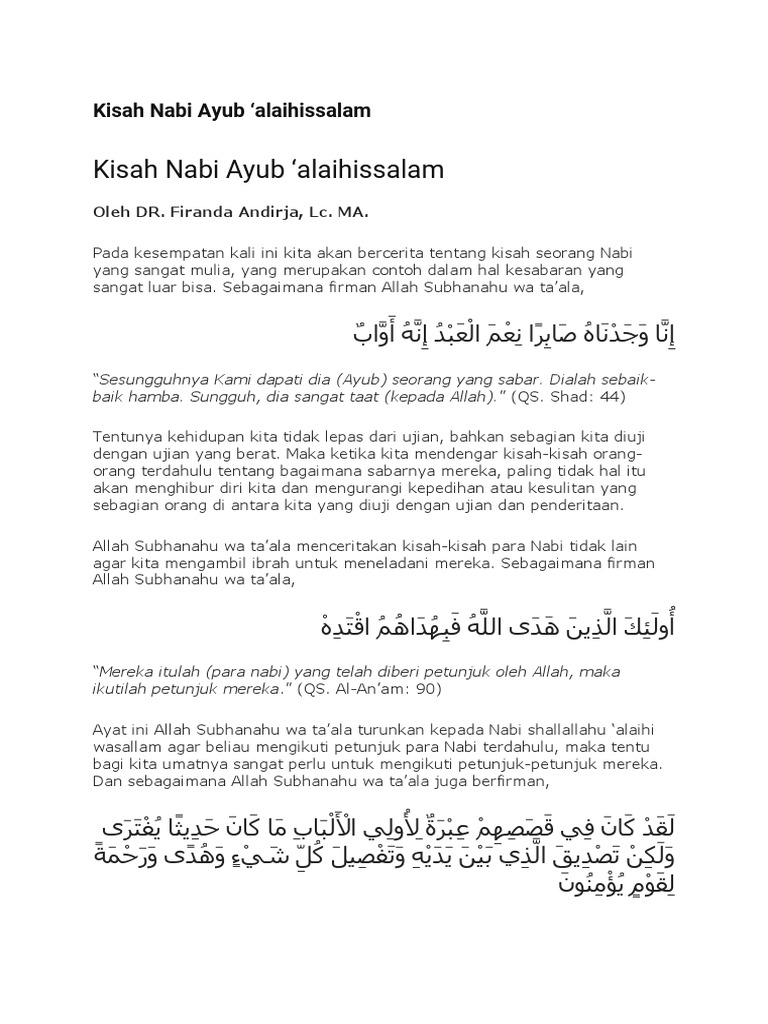 Kisah Nabi Ayub ‘alaihissalam
Kisah Nabi Ayub ‘alaihissalam
Oleh DR. Firanda Andirja, Lc. MA.
Pada kesempatan kali ini kita akan bercerita tentang kisah seorang Nabi
yang sangat mulia, yang merupakan contoh dalam hal kesabaran yang
sangat luar bisa. Sebagaimana firman Allah Subhanahu wa ta’ala,
إِنَّا وَجَدْنَاهُ صَابِرًا نِعْمَ الْعَبْدُ إِنَّهُ أَوَّابٌ
“Sesungguhnya Kami dapati dia (Ayub) seorang yang sabar. Dialah sebaik-
baik hamba. Sungguh, dia sangat taat (kepada Allah).” (QS. Shad: 44)
Tentunya kehidupan kita tidak lepas dari ujian, bahkan sebagian kita diuji
dengan ujian yang berat. Maka ketika kita mendengar kisah-kisah orang-
orang terdahulu tentang bagaimana sabarnya mereka, paling tidak hal itu
akan menghibur diri kita dan mengurangi kepedihan atau kesulitan yang
sebagian orang di antara kita yang diuji dengan ujian dan penderitaan.
Allah Subhanahu wa ta’ala menceritakan kisah-kisah para Nabi tidak lain
agar kita mengambil ibrah untuk meneladani mereka. Sebagaimana firman
Allah Subhanahu wa ta’ala,
أُولَئِكَ الَّذِينَ هَدَى اللَّهُ فَبِهُدَاهُمُ اقْتَدِهْ
“Mereka itulah (para nabi) yang telah diberi petunjuk oleh Allah, maka
ikutilah petunjuk mereka.” (QS. Al-An’am: 90)
Ayat ini Allah Subhanahu wa ta’ala turunkan kepada Nabi shallallahu ‘alaihi
wasallam agar beliau mengikuti petunjuk para Nabi terdahulu, maka tentu
bagi kita umatnya sangat perlu untuk mengikuti petunjuk-petunjuk mereka.
Dan sebagaimana Allah Subhanahu wa ta’ala juga berfirman,
لَقَدْ كَانَ فِي قَصَصِهِمْ عِبْرَةٌ لِأُولِي الْأَلْبَابِ مَا كَانَ حَدِيثًا يُفْتَرَى
وَلَكِنْ تَصْدِيقَ الَّذِي بَيْنَ يَدَيْهِ وَتَفْصِيلَ كُلِّ شَيْءٍ وَهُدًى وَرَحْمَةً
لِقَوْمٍ يُؤْمِنُونَ